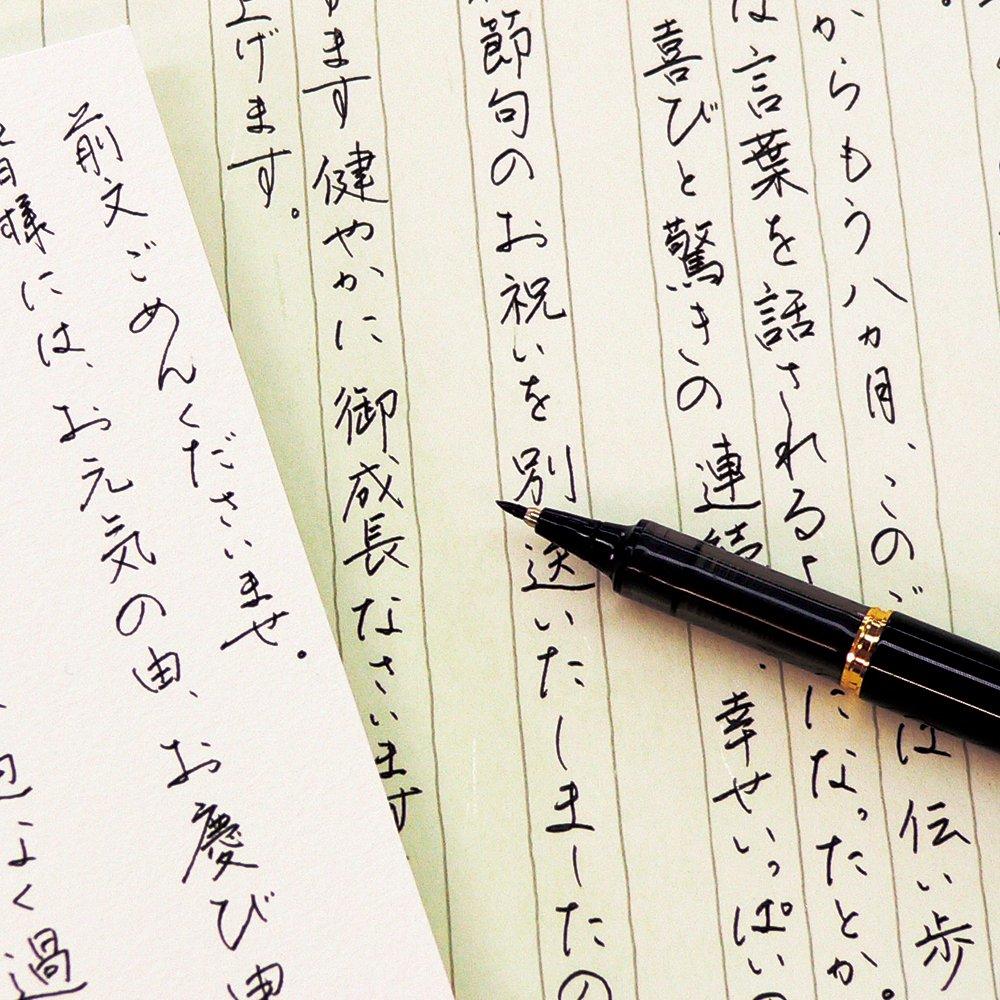 からもう八ヵ月、このご
は 伝い歩
は言葉を話されるよ
になったとか。
喜びと驚きの連続
幸せいっぱいの
節句のお祝いを別送いたしましたの
ます 健やかに 御成長なさいます
上げます。
前文ごめんくださいませ。
皆様には、お元気の由、お慶び申
よく過